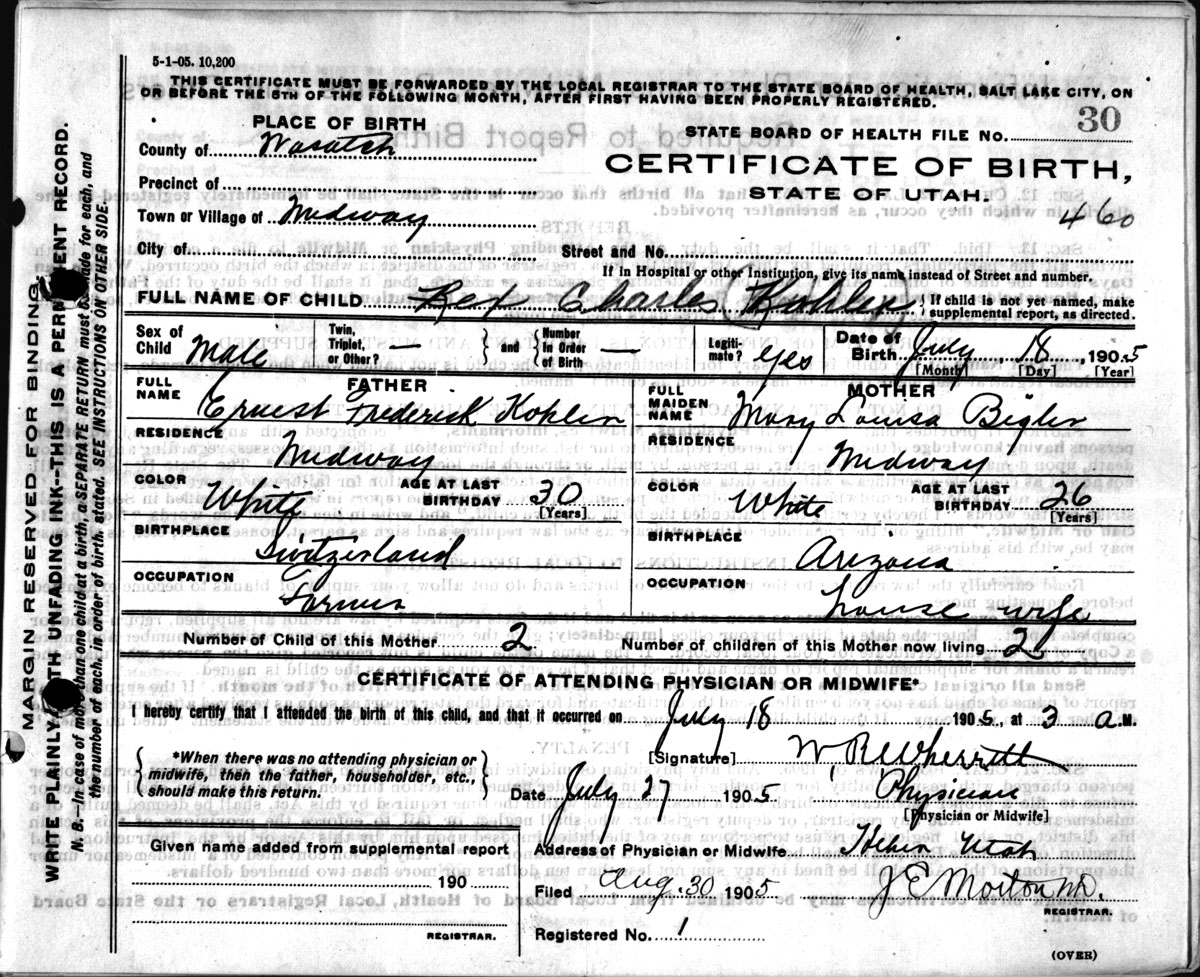 5-1-05. 10,200
THIS CERTIFICATE MUST BE FORWARDED BY THE LOCAL REGISTRAR TO THE STATE BOARD OF HEALTH, SALT LAKE CITY, ON
OR BEFORE THE 5TH OF THE FOLLOWING MONTH, AFTER FIRST HAVING BEEN PROPERLY REGISTERED.
PLACE OF BIRTH
STATE BOARD OF HEALTH FILE NO. 30
County of Wasatch
CERTIFICATE OF BIRTH,
Precinct of
STATE OF UTAH.
Town or Village of Midway
460
City of
Street and No.
If in Hospital or other Institution, give its name instead of Street and number.
FULL NAME OF CHILD Rex Charles Kohler } If child is not yet named, make supplemental report, as directed.
Sex of Child Male
Twin, Triplet, or Other? } and { Number in Order of Birth —
Legitimate? yes
Date of Birth July 18, 1905
[Month] [Day] [Year]
FATHER
FULL NAME Ernest Frederick Kohler
MOTHER
FULL MAIDEN NAME Mary Louisa Bigler
RESIDENCE Midway
RESIDENCE Midway
COLOR White AGE AT LAST BIRTHDAY 30 [Years]
COLOR White AGE AT LAST BIRTHDAY 26 [Years]
BIRTHPLACE Switzerland
BIRTHPLACE Arizona
OCCUPATION Farmer
OCCUPATION house wife
Number of Child of this Mother 2
Number of children of this Mother now living 2
CERTIFICATE OF ATTENDING PHYSICIAN OR MIDWIFE*
I hereby certify that I attended the birth of this child, and that it occurred on July 18 1905, at 3 a.M.
{ *When there was no attending physician or midwife, then the father, householder, etc., should make this return. }
[Signature] W R Wherritt
Date July 27 1905 Physician
[Physician or Midwife]
Given name added from supplemental report
190
REGISTRAR.
Address of Physician or Midwife Heber Utah
Filed Aug. 30 1905 J E Morton
REGISTRAR.
Registered No. 1
(OVER)
MARGIN RESERVED FOR BINDING.
WRITE PLAINLY WITH UNFADING INK—THIS IS A PERMANENT RECORD.
N. B.—In case of more than one child at a birth, a SEPARATE RETURN must be made for each, and
the number of each, in order of birth, stated. SEE INSTRUCTIONS ON OTHER SIDE.